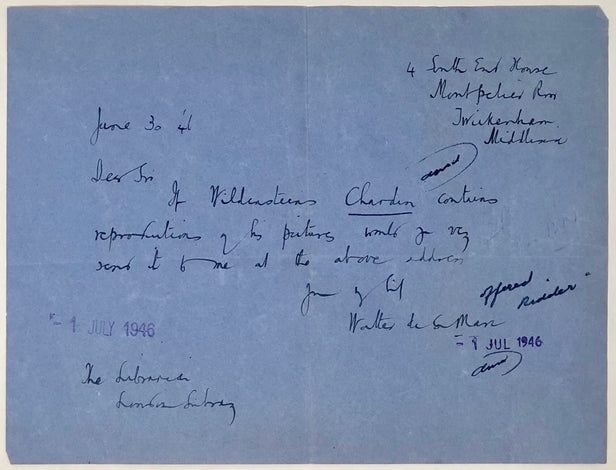 4 South End House
Montpelier Row
Twickenham
Middlesex
June 30 '46
Dear Sir
If Wildensteins Chardin contains
reproductions of his pictures would you very
send it to me at the above address
Yours faithfully
Walter de la Mare
offered
Ridder"
- 1 JULY 1946
- 1 JUL 1946
The Librarian
London Library